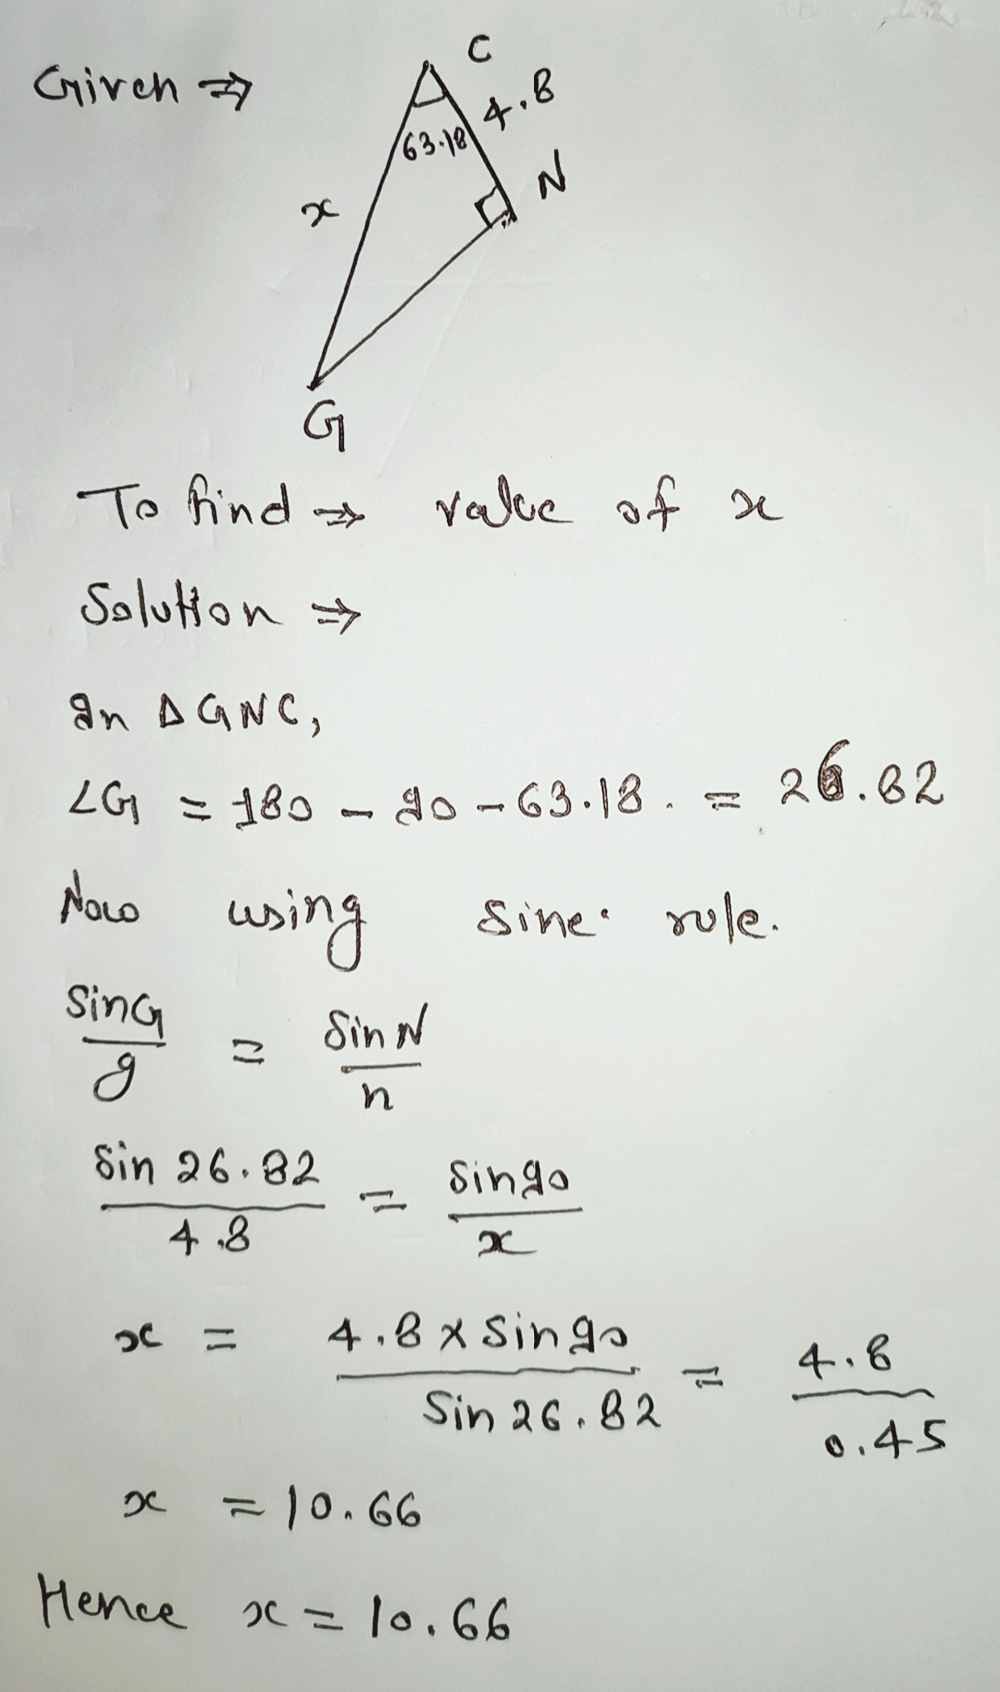 Given ⇒
C
4.8
63.18
N
x
G
To find ⇒ value of x
Solution ⇒
In Δ GNC,
∠G = 180 - 90 - 63.18. = 26.82
Now using sine rule.
SinG/g = Sin N/n
Sin 26.82/4.8 = Sin90/x
x = 4.8 x Sin 90/Sin 26.82 = 4.8/0.45
x = 10.66
Hence x = 10.66